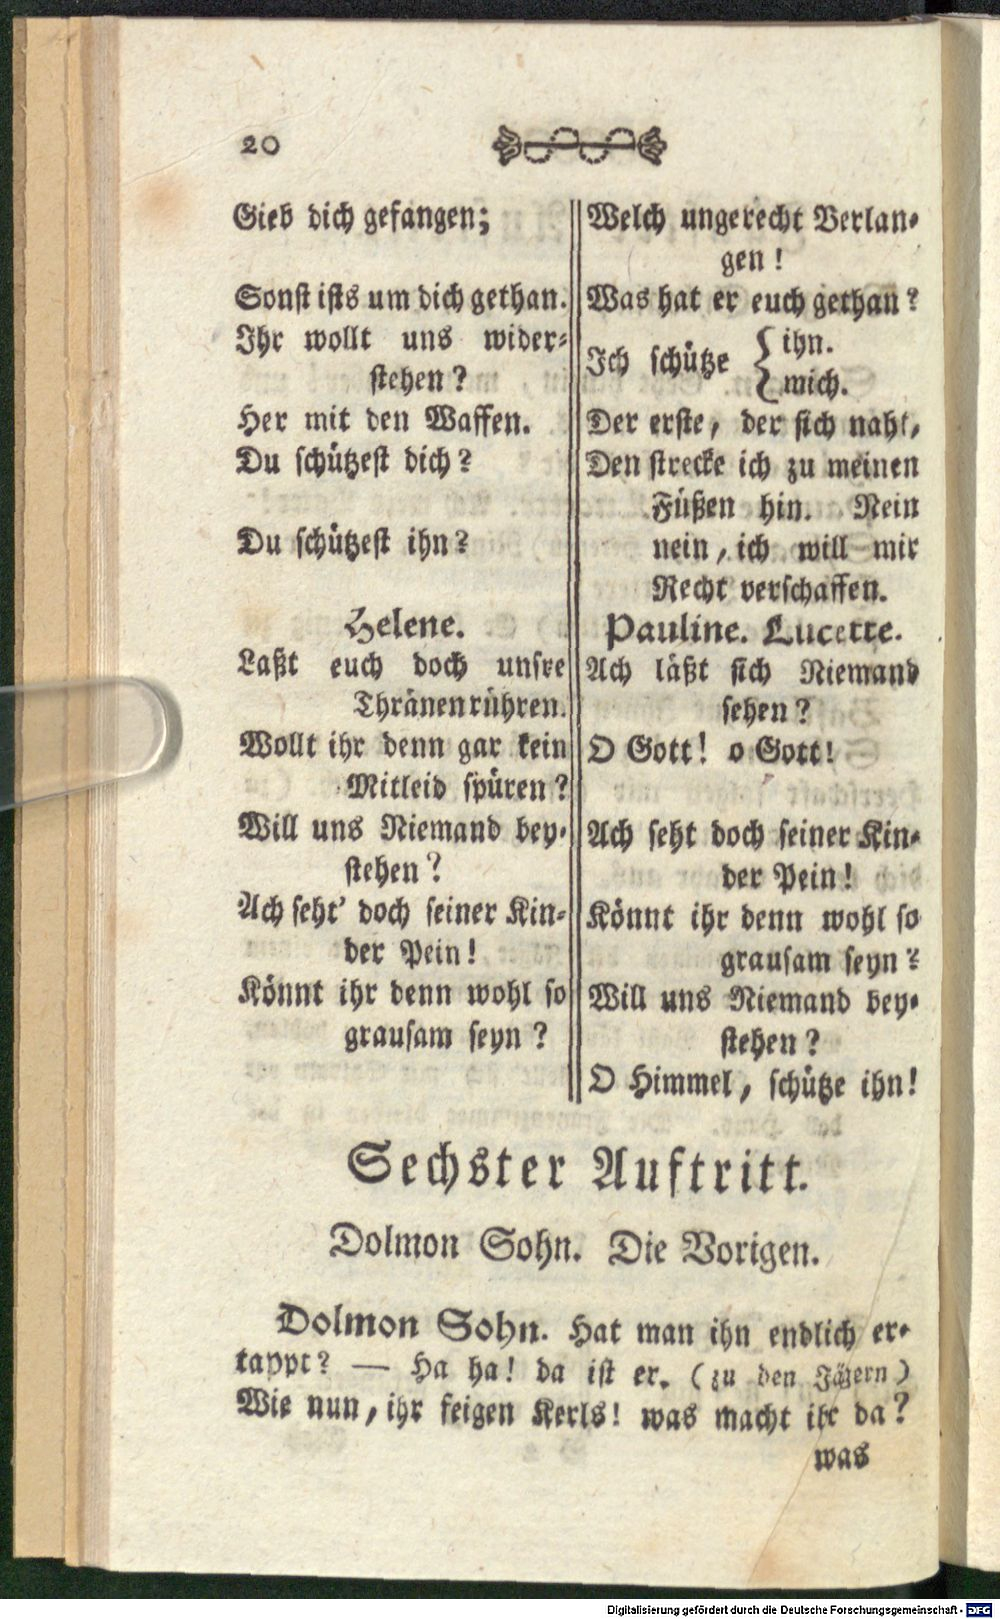 20
Gieb dich gefangen;
Sonst ists um dich gethan.
Ihr wollt uns wider-
stehen?
Her mit den Waffen.
Du schützest dich?
Du schützest ihn?
Helene.
Laßt euch doch unsre
Thränen rühren.
Wollt ihr denn gar kein
Mitleid spüren?
Will uns Niemand bey-
stehen?
Ach seht' doch seiner Kin-
der Pein!
Könnt ihr denn wohl so
grausam seyn?
Welch ungerecht Verlan-
gen!
Was hat er euch gethan?
Ich schütze { ihn.
mich.
Der erste, der sich naht,
Den strecke ich zu meinen
Füßen hin. Nein
nein, ich will mir
Recht verschaffen.
Pauline. Lucette.
Ach läßt sich Niemand
sehen?
O Gott! o Gott!
Ach seht doch seiner Kin-
der Pein!
Könnt ihr denn wohl so
grausam seyn?
Will uns Niemand bey-
stehen?
O Himmel, schütze ihn!
Sechster Auftritt.
Dolmon Sohn. Die Vorigen.
Dolmon Sohn. Hat man ihn endlich er-
tappt? — Ha ha! da ist er. (zu den Jägern)
Wie nun, ihr feigen Kerls! was macht ihr da?
was
Digitalisierung gefördert durch die Deutsche Forschungsgemeinschaft - DFG